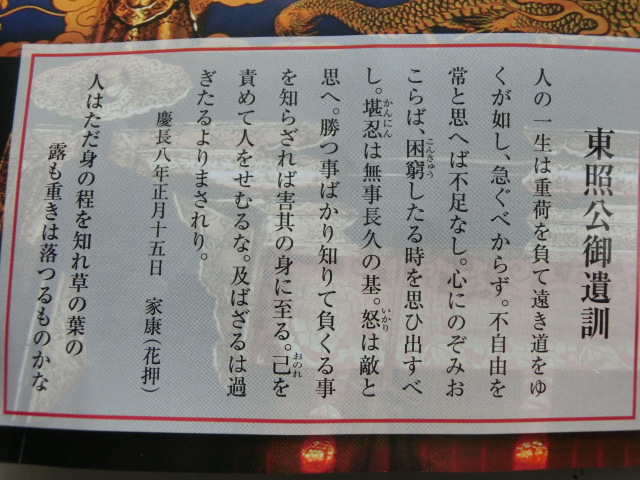 東照公御遺訓
人の一生は重荷を負て遠き道をゆ
くが如し、急ぐべからず。不自由を
常と思へば不足なし。心にのぞみお
こらば、困窮したる時を思ひ出すべ
し。堪忍は無事長久の基。怒は敵と
思へ。勝つ事ばかり知りて負くる事
を知らざれば害其の身に至る。己を
責めて人をせむるな。及ばざるは過
ぎたるよりまされり。
慶長八年正月十五日 家康(花押)
人はただ身の程を知れ草の葉の
露も重きは落つるものかな
こんきゅう
かんにん
いかり
おのれ